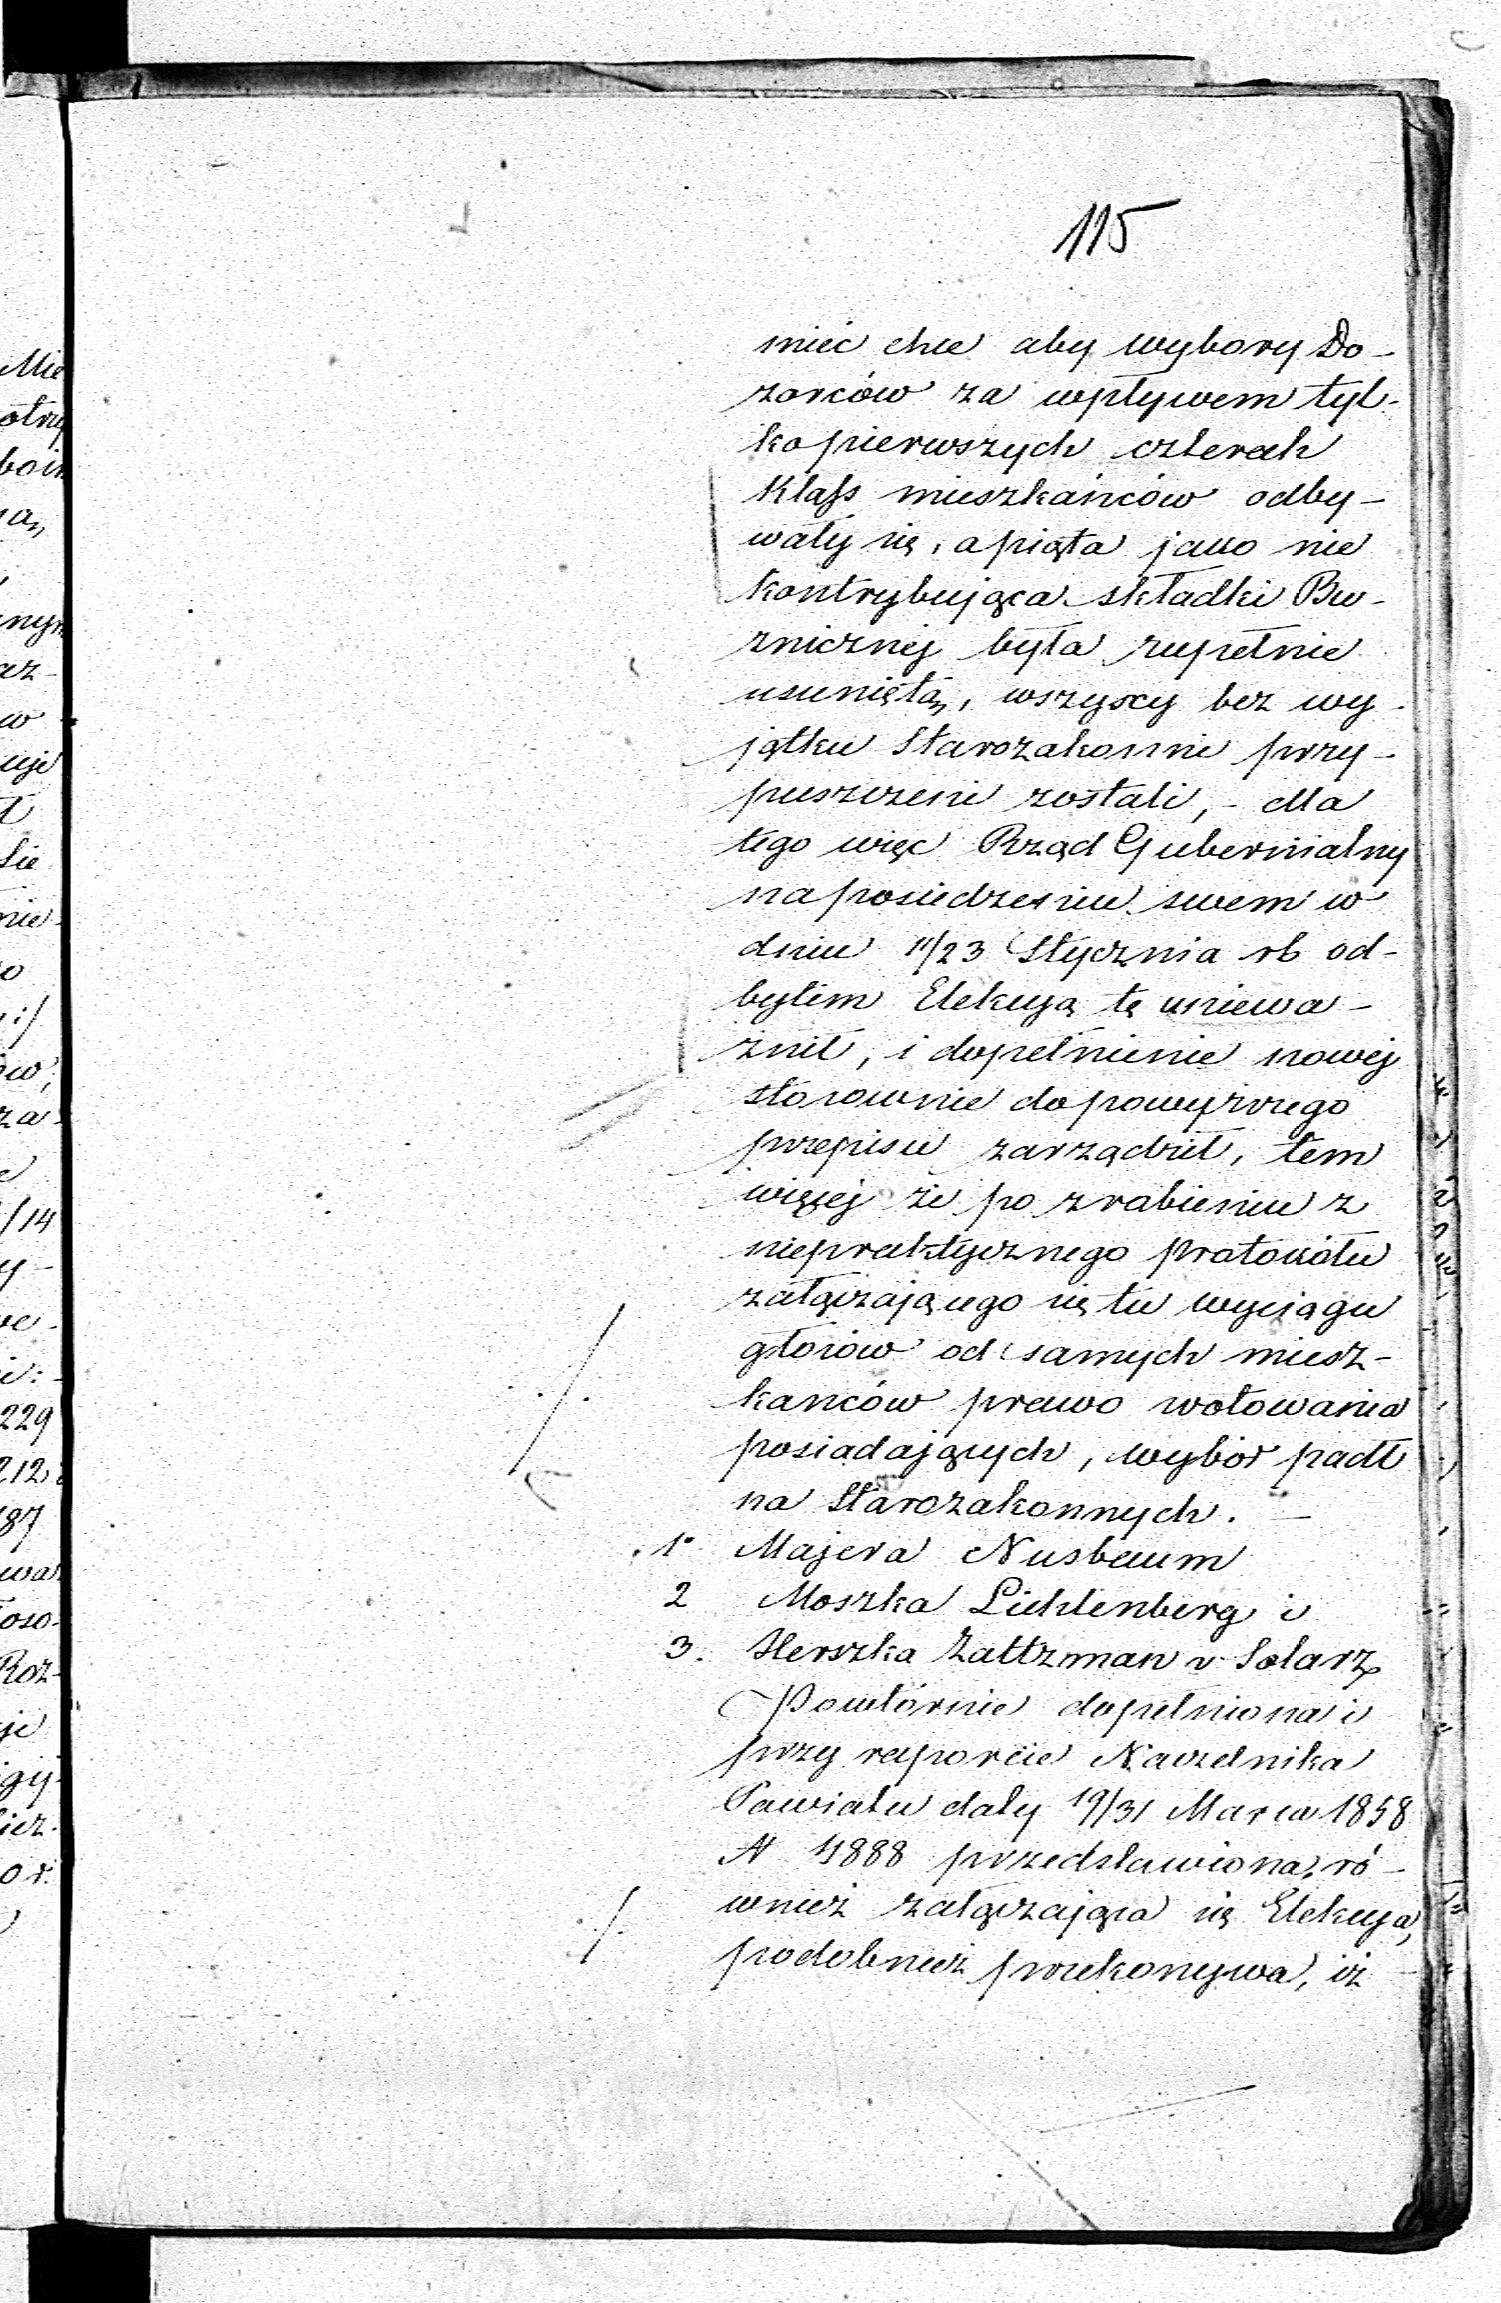 115
mieć chce aby wybory Do-
zorców za wpływem tyl-
ko pierwszych czterech
Klass mieszkańców odby-
wały się, a piąta jako nie
kontrybująca składki Bu-
żnicznej była zupełnie
usuniętą, wszyscy bez wy-
jątku Starozakonni przy-
puszczeni zostali, - dla
tego więc Rząd Gubernialny
na posiedzeniu swem w
dniu 11/23 Stycznia rb od-
bytem Elekcyą tę unieważ-
nił, i dopełnienie nowej
stosownie do powyższego
przepisu zarządził, tem
więcej że po zrobieniu z
niepraktycznego protokółu
załączającego się tu wyciągu
głosów od samych miesz-
kańców prawo wotowania
posiadających, wybór padł
na Starozakonnych. -
1° Majera Nusbaum
2 Moszka Lichtenberg i
3. Herszka Zaltzman v Solarz
Powtórnie dopełniona i
przy raporcie Naczelnika
Powiatu daty 19/31 Marca 1858
N 4888 przedstawiona, ró-
wnież załączająca się Elekcya,
podobnież przekonywa, iż